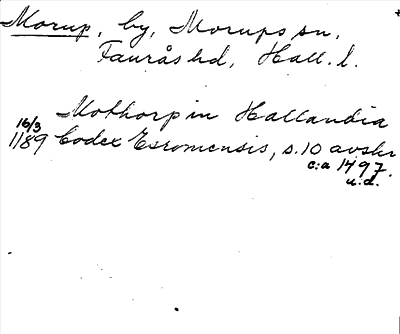 Morup, by, Morups sn,
Fauråshd, Hall. l.
Mothorp in Hallandia
16/3
1189 Codex Esromensis, s. 10 avskr
c:a 1497.
u.d.